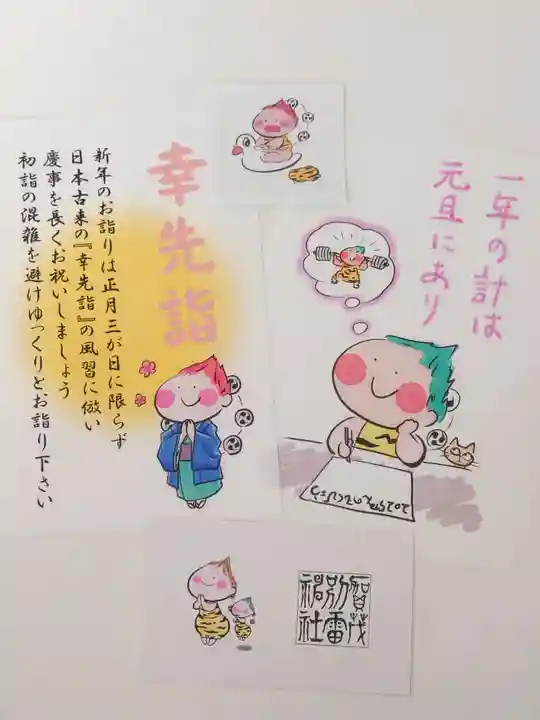 幸先詣
新年のお詣りは正月三が日に限らず
日本古来の『幸先詣』の風習に倣い
慶事を長くお祝いしましょう
初詣の混雑を避けゆっくりとお詣り下さい
一年の計は
元旦にあり
賀茂
別雷
神社